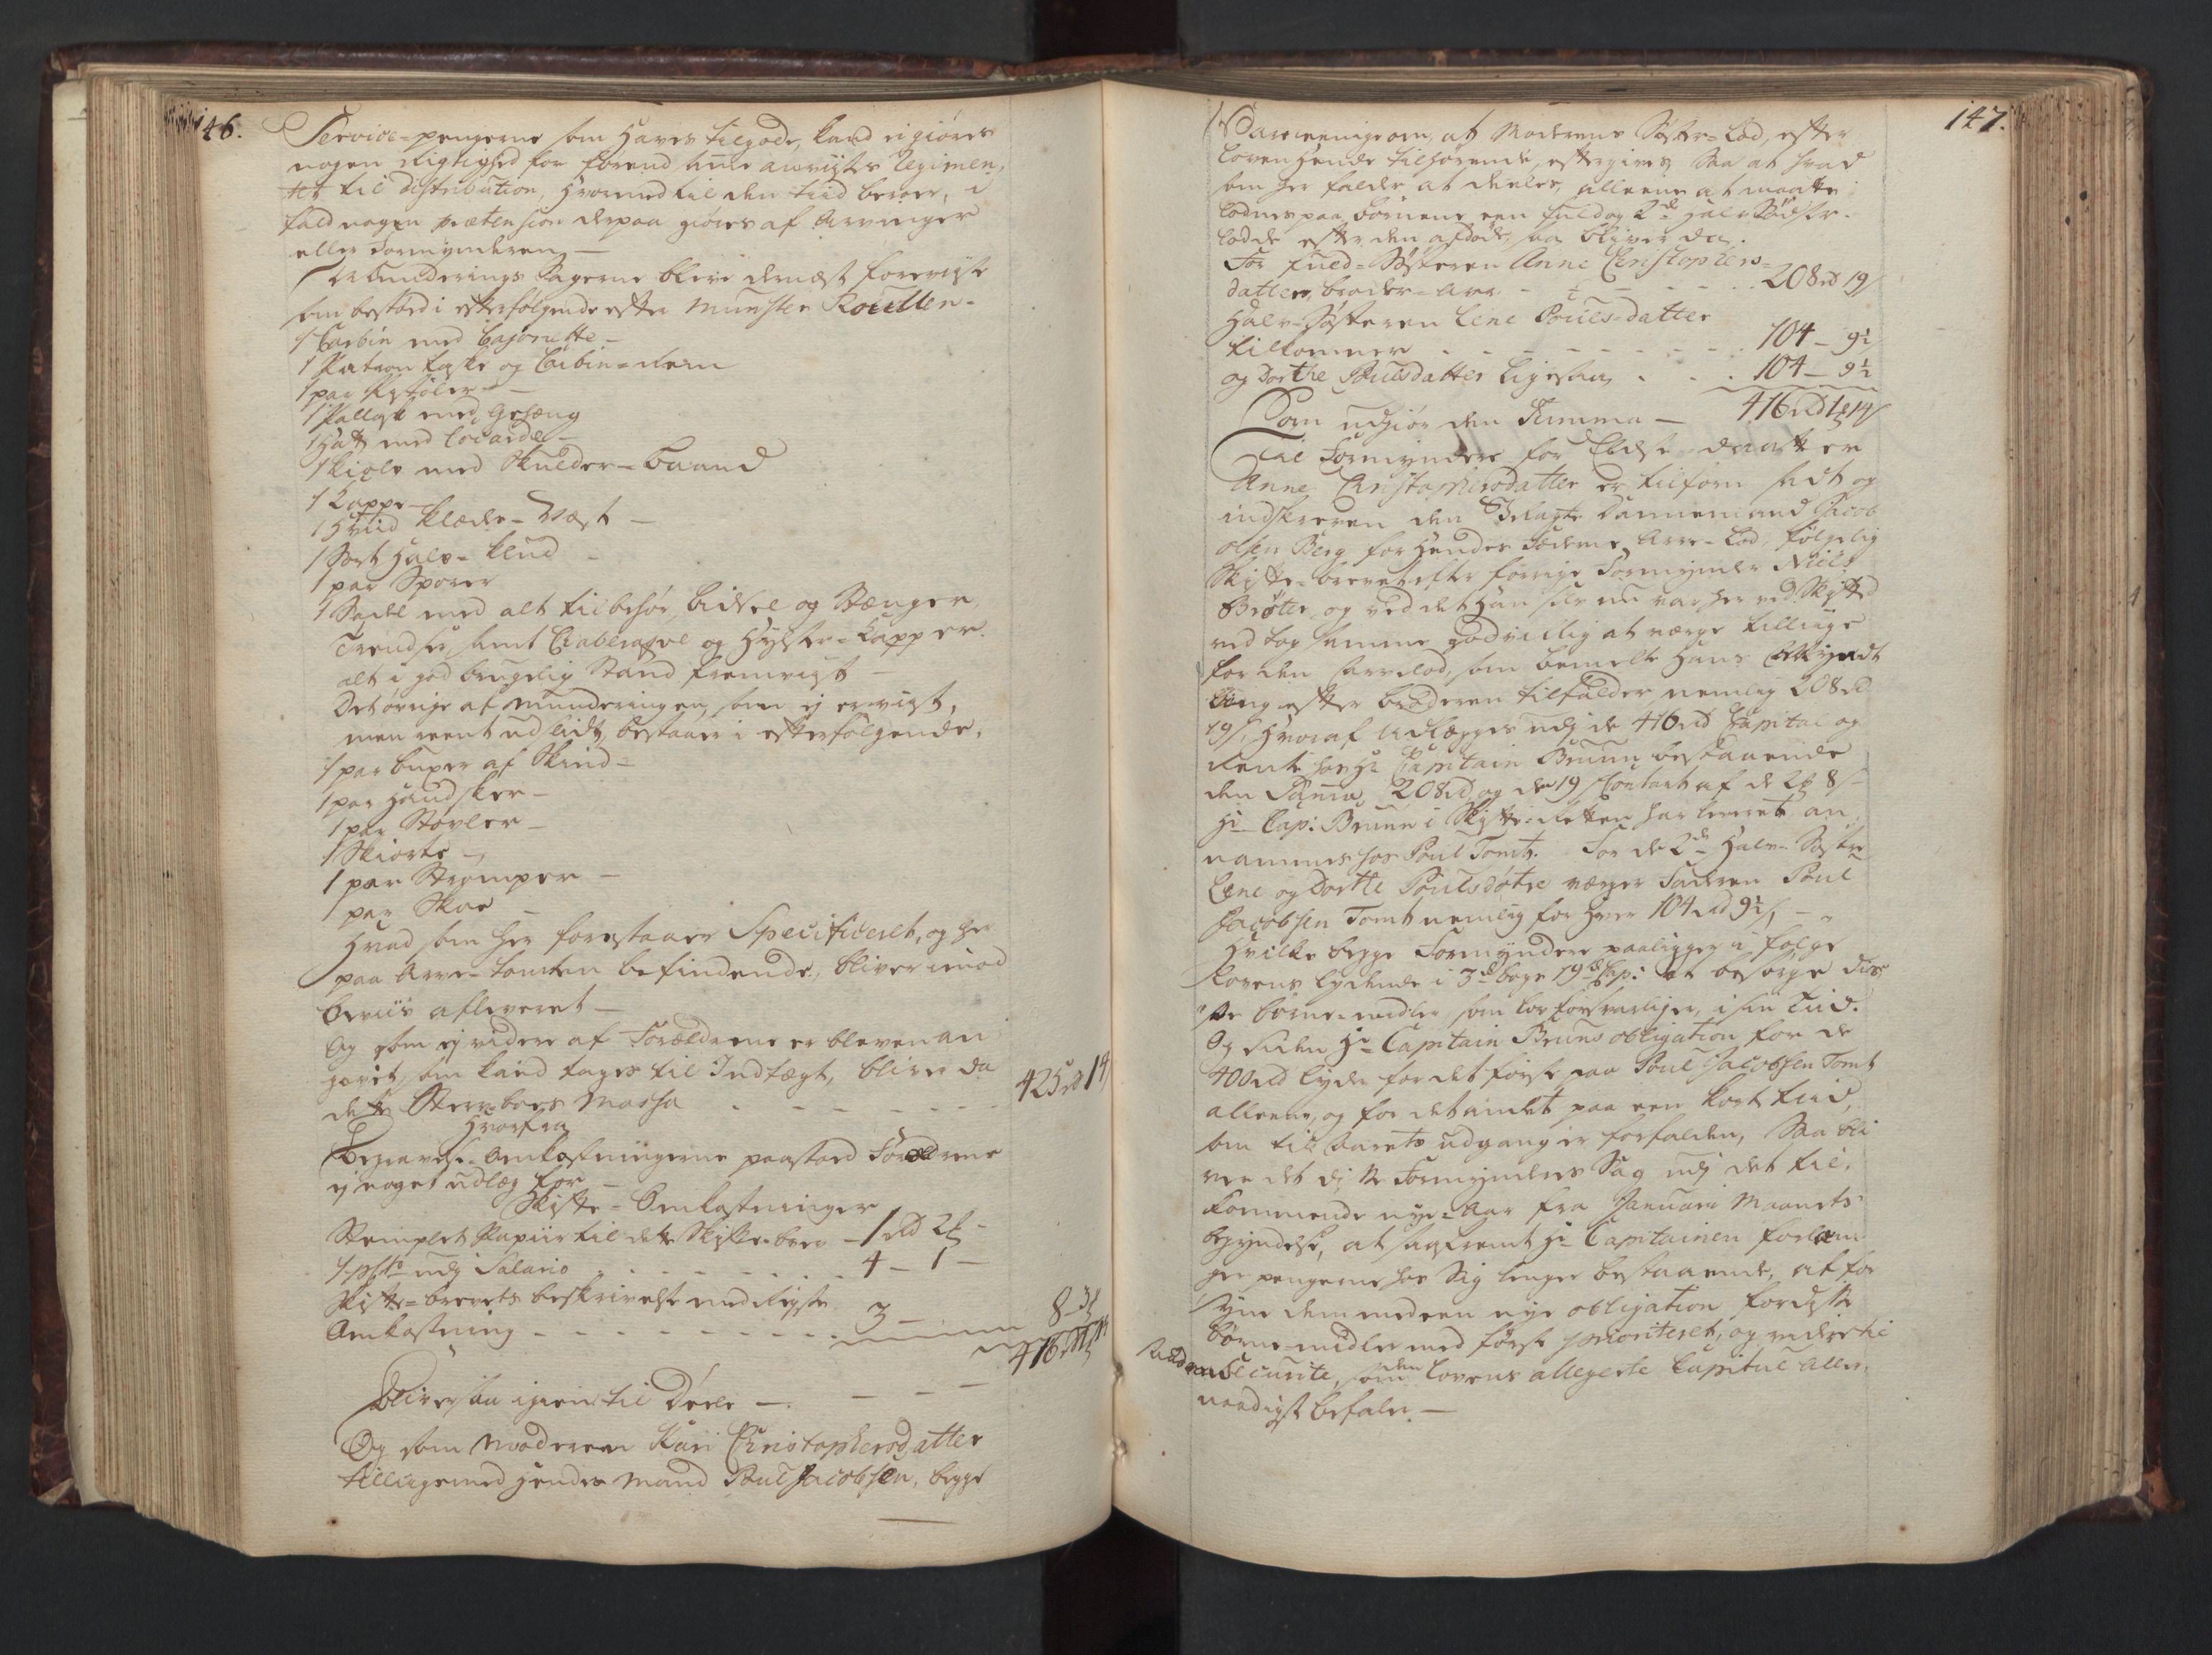 146.
Service-pengerne som haves tilgode, kand ei giøres
nogen Rigtighed for forend hine anviistes Regimen-
tet til distribution, hvormed til den tiid beroer, i
fald nogen prætension derpaa giøres af Arvinger
eller Formynderen —
Munderings Sagerne bleve dernæst foreviste
som bestoed i efterfølgende efter Munster Roullen-
1 Carbin med Bajonette —
1 Patron taske og Carbin-Rem
1 par Pistoler —
1 Pallask med gehæng
1 Hatt med Cocarde —
1 Kiole med Skulder-Baand
1 Kappe —
1 Hviid Klæde-Væst —
1 Sort Hals-Klud —
1 par Sporer
1 Sadel med alt tilbehør, Bidsel og Stænger
Trendser, samt Chabrasque og Hylster-Kapper
alt i god brugelig Stand fremviist —
Det øvrige af Munderingen, som ej er viist,
men reent udslidt, bestaaer i efterfølgende,
1 par buxer af Skind —
1 par Handsker —
1 par Støvler —
1 Skiorte —
1 par Strømper —
1 par Skoe —
Hvad som her forestaaer Specificeret, og her
paa Arve-Tomten befindende, bliver imod
Beviis afleveret —
Og som ej videre af Forældrene er bleven an
givet, som kand tages til Indtægt, bliver da
dette Sterv-boes Massa - - - - - - 425 rd 14
Hvorfra
Begravelse-Omkostningerne paastoed Forældrene
ej noget udlæg for —
Skifte-Omkostninger
Stemplet Papiir til dette Skifte-brev — 1 rd 2 ₰ -
1 pCto udj Salario - - - - - 4 — 1 —
Skifte-brevets beskrivelse med Rejse
Omkostning - - - - - - - 3 — 8 - 3 ₰
Bliver saa igien til Deele — — — 416
Og som Moderen Kari Christophersdatter
tilligemed hendes Mand Poul Jacobsen, begge
147.
Vare eenige om, at Moderens Søster-Lod, efter
Loven hende tilhørende, eftergives, saa at hvad
som her falder at deeles, alleene at maatte
lodnes paa børnene een fuld og 2de halv Sødsker-
lodde efter den afdøde, saa bliver da.
For fuld-Søsteren Anne Christophers-
datter, broder-Arv - - - - 208 rd 19 ₰
Halv-Søsteren Lene Pouls-datter
tilkommer - - - - - - 104 — 9½
og Dorthe Poulsdatter ligesaa - - - 104 — 9½
Som udgiør den Summa — 416 rd 14 ₰
Til Formyndere for Eldste datter
Anne Christophersdatter er tilforn sadt og
indskreven den Velagte Dannemand Jacob
Olsen Berg for hendes Fæderne Arve-Lod, følgelig
Skifte-brevet efter forrige Formynder Niels
Brøten, og ved det han selv nu var her ved Skiftet
vedtog samme godvillig at værge tillige
for den Arvelod, som bemelte hans Myndt
ling efter broderen tilfalder nemlig 208 rd
19 ₰, hvoraf udlægges udj de 416 rd Capital og
Rente hos Hr Capitain Bruun bestaaende
den Summa 208 rd og de 19 ₰ Contant af de 2 ₰ 8 ₰
Hr Cap: Bruun i Skifte-Retten har leveret an
nammes hos Poul Tomt. For de 2de Halv-Søstre
Lene og Dorthe Poulsdøtre værger Faderen Poul
Jacobsen Tomt nemlig for hver 104 rd 9½ ₰, —
Hvilke begge Formyndere paaligger i følge
Lovens lydende i 3die bogs 19de Cap: at besørge dis-
se børne-midler som lov forsvarligen, i sin Tiid.
Og siden Hr Capitain Bruns obligation for de
400 rd lyder for det første paa Poul Jacobsen Tomt
alleene, og for det andet paa een kort tiid,
som til Aarets udgang er forfalden, Saa bli
ver det disse Formynderes Sag udj det til-
kommende nye-Aar fra Januari Maaneds
begyndelse, at saafremt Hr Capitainen forlan
ger pengerne hos Sig lenger bestaaende, at for
syne dem med een nye obligation for disse
børne-midler med første prioritet, og videre til
Securite, som den Lovens allegerte Capitul aller-
naadigst befaler. —